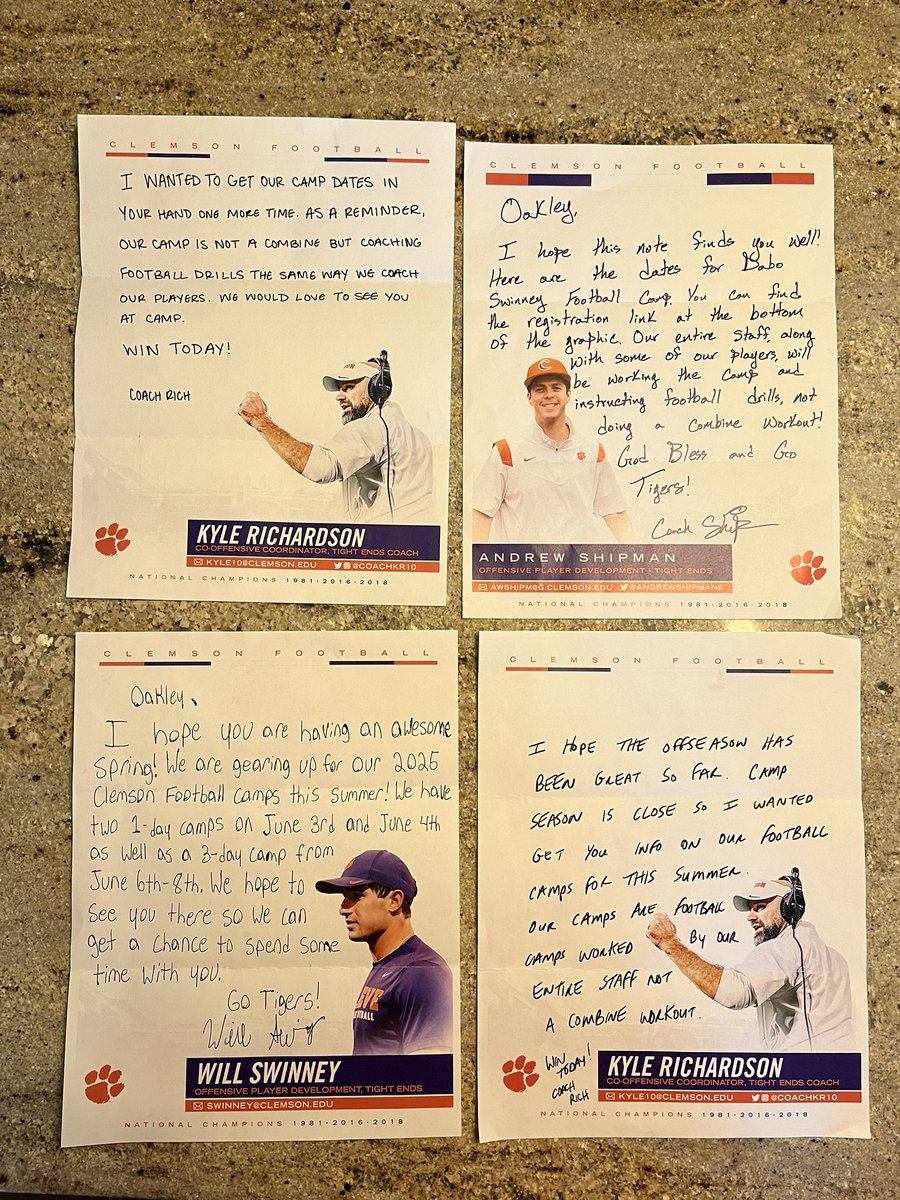 CLEMSON FOOTBALL
I WANTED TO GET OUR CAMP DATES IN
YOUR HAND ONE MORE TIME. AS A REMINDER,
OUR CAMP IS NOT A COMBINE BUT COACHING
FOOTBALL DRILLS THE SAME WAY WE COACH
OUR PLAYERS. WE WOULD LOVE TO SEE YOU
AT CAMP.
WIN TODAY!
COACH RICH
KYLE RICHARDSON
CO-OFFENSIVE COORDINATOR, TIGHT ENDS COACH
KYLE10@CLEMSON.EDU · @COACHKR10
NATIONAL CHAMPIONS 1981·2016·2018
CLEMSON FOOTBALL
Oakley,
I hope this note finds you well!
Here are the dates for Dabo
Swinney Football Camp. You can find
the registration link at the bottom
of the graphic. Our entire staff, along
with some of our players, will
be working the camp and
instructing football drills, not
doing a combine workout!
God Bless and Go
Tigers!
Coach Ship
C
ANDREW SHIPMAN
OFFENSIVE PLAYER DEVELOPMENT - TIGHT ENDS
AWSHIPM@G.CLEMSON.EDU · @ANDREWSHIPMAN6
NATIONAL CHAMPIONS 1981·2016·2018
CLEMSON FOOTBALL
Oakley,
I hope you are having an awesome
Spring! We are gearing up for our 2025
Clemson Football camps this summer! We have
two 1-day camps on June 3rd and June 4th
as well as a 3-day camp from
June 6th-8th. We hope to
see you there so we can
get a chance to spend some
time with you.
Go Tigers!
Will
WILL SWINNEY
OFFENSIVE PLAYER DEVELOPMENT, TIGHT ENDS
SWINNEY@CLEMSON.EDU
NATIONAL CHAMPIONS 1981·2016·2018
CLEMSON FOOTBALL
I HOPE THE OFFSEASON HAS
BEEN GREAT SO FAR. CAMP
SEASON IS CLOSE SO I WANTED
GET YOU INFO ON OUR FOOTBALL
CAMPS FOR THIS SUMMER.
OUR CAMPS ARE FOOTBALL
CAMPS WORKED BY OUR
ENTIRE STAFF NOT
A COMBINE WORKOUT.
WIN
TODAY!
COACH
RICH
KYLE RICHARDSON
CO-OFFENSIVE COORDINATOR, TIGHT ENDS COACH
KYLE10@CLEMSON.EDU · @COACHKR10
NATIONAL CHAMPIONS 1981·2016·2018